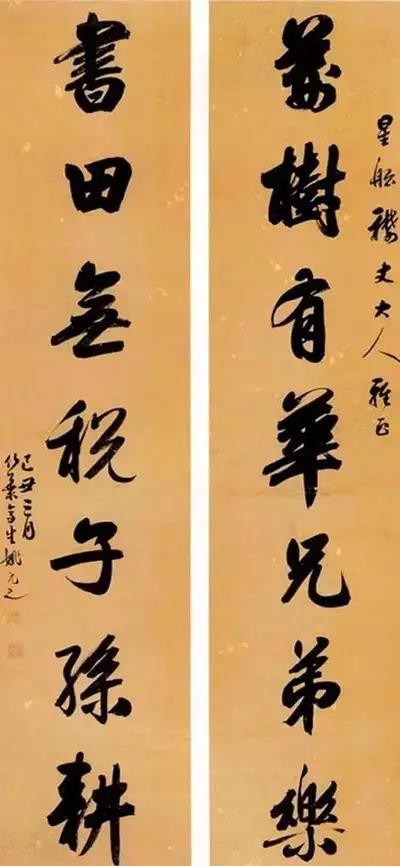 星丈大人雅正
萼樹有華兄弟樂
書田無稅子孫耕
己丑三月
竹葉亭生姚元之